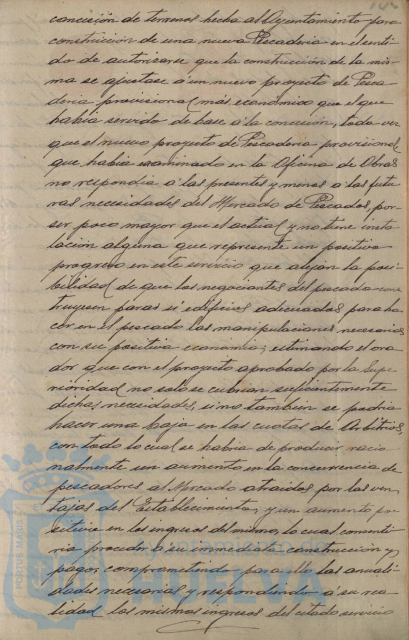 concesión de terrenos hecha al Ayuntamiento para
construcción de una nueva Pescaderia en el senti-
do de autorizarse que la construcción de la mis-
ma se ajustase á un nuevo proyecto de Pesca-
deria provisional mas economico que el que
habia servido de base á la concesion, toda vez
que el nuevo proyecto de Pescaderia provisional
que habia examinado en la Oficina de Obras
no respondia á las presentes y menos á las futu-
ras necesidades del Mercado de Pescados, por
ser poco mayor que el actual y no tiene insta-
lación alguna que represente un positivo
progreso en este servicio que alejan la posi-
bilidad de que los negociantes del pescado cons-
truyesen para si edificios adecuados para ha-
cer en el pescado las manipulaciones necesarias
con su positiva economia; estimando el ora-
dor que con el proyecto aprobado por la Supe-
rioridad no solo se cubrian suficientemente
dichas necesidades, sino tambien se podria
hacer una baja en las cuotas de Arbitrios,
con todo lo cual se habria de producir racio-
nalmente un aumento en la concurrencia de
pescadores al Mercado atraidos por las ven-
tajas del Establecimiento, y un aumento po-
sitivo en los ingresos del mismo, lo cual consenti-
ria proceder á su inmediata construcción y
pago, comprometiendo para ello las anuali-
dades necesarias y respondiendo á su rea-
lidad los mismos ingresos del citado servicio
PORTUS MARIS
Ayuntamiento de
HUELVA